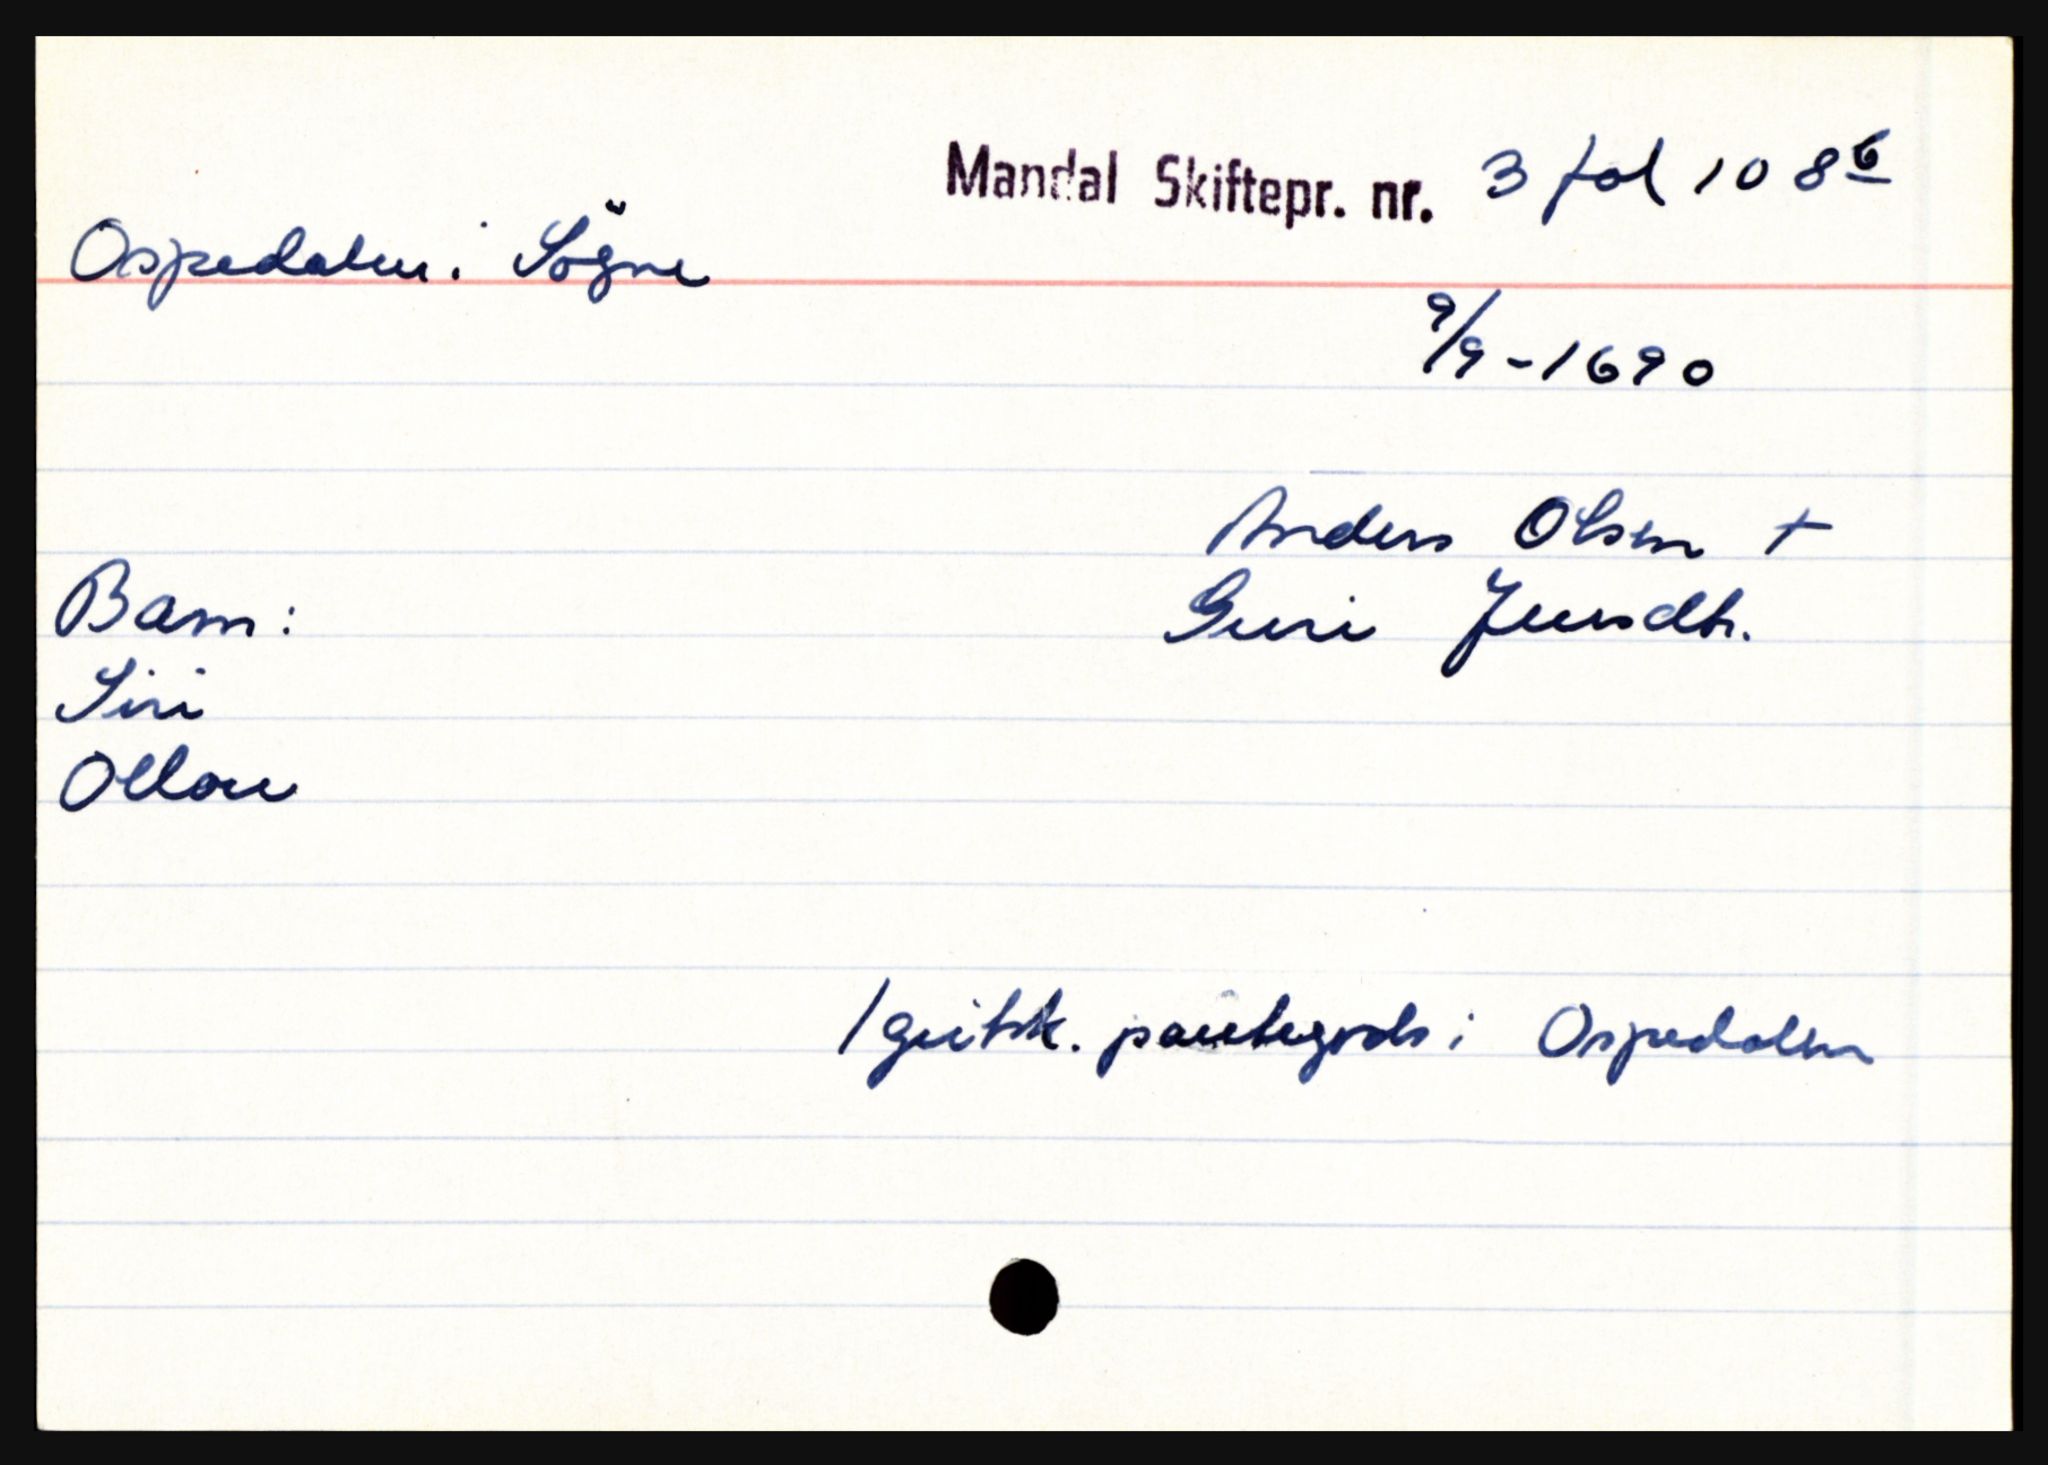 Mandal Skiftepr. nr. 3 fol 108 b
Ospedalen i Sögne
9/9-1690
Anders Olsen +
Barn: Guri Jensdtr.
Siri
Ollou
1 geitsk. pantegods i Ospedalen